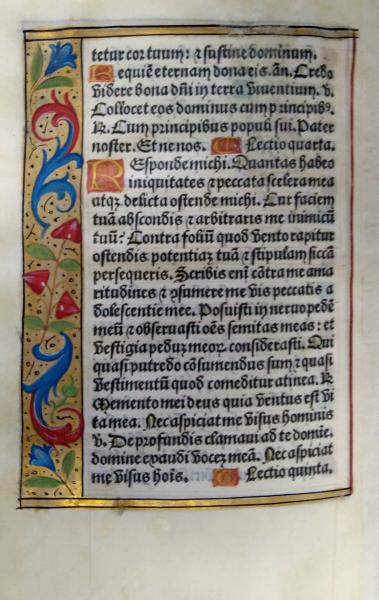 tetur cor tuum: ⁊ sustine dominum.
Requiē eternam dona eis. an̄. Credo
videre bona dn̄i in terra viventium. v.
Collocet eos dominus cum p̄ncipibꝰ.
R. Cum principibus populi sui. Pater
noster. Et ne nos. Lectio quarta.
Responde michi. Quantas habeo
iniquitates ⁊ peccata scelera mea
atqꝫ delicta ostende michi. Cur faciem
tuā abscondis ⁊ arbitraris me inimicū
tuū? Contra foliū quod vento rapitur
ostendis potentiaꝫ tuā ⁊ stipulam siccā
persequeris. Scribis enī cōtra me ama
ritudines ⁊ ꝯsumere me vis peccatis a
dolescentie mee. Posuisti in neruo pedē
meū ⁊ obseruasti oēs semitas meas: et
vestigia peduꝫ meoꝝ considerasti. Qui
quasi putredo cōsumendus sum ⁊ quasi
vestimentū quod comeditur a tinea. R.
Memento mei deus quia ventus est vi
ta mea. Nec aspiciat me visus hominis
v. De profundis clamaui ad te domīe.
domine exaudi voceꝫ meā. Nec aspiciat
me visus hoīs. Lectio quinta.